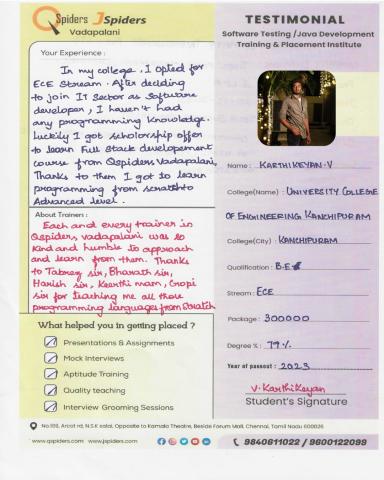 QSpiders JSpiders
Vadapalani
TESTIMONIAL
Software Testing /Java Development
Training & Placement Institute
Your Experience :
In my college, I opted for
ECE Stream. After deciding
to join IT Sector as software
developer, I haven't had
any programming knowledge.
Luckily I got scholorship offer
to learn Full Stack developement
course from Qspiders Vadapalani,
Thanks to them I got to learn
programming from scratch to
Advanced level.
About Trainers :
Each and every trainer in
Qspiders, vadapalani was so
kind and humble to approach
and learn from them. Thanks
to Tabrez sir, Bharath sir,
Harish sir, Keerthi mam, Gopi
sir for teaching me all those
programming languages from Scratch
What helped you in getting placed ?
Presentations & Assignments
Mock Interviews
Aptitude Training
Quality teaching
Interview Grooming Sessions
Name : KARTHIKEYAN.V
College(Name) : UNIVERSITY COLLEGE
OF ENGINEERING KANCHIPURAM
College(City) : KANCHIPURAM
Qualification : B.E
Stream : ECE
Package : 300000
Degree % : 79%
Year of passout : 2023
V. Karthikeyan
Student's Signature
No.100, Arcot rd, N.S.K salai, Opposite to Kamala Theatre, Beside Forum Mall, Chennai, Tamil Nadu 600026
www.qspiders.com www.jspiders.com
9840611022 / 9600122098